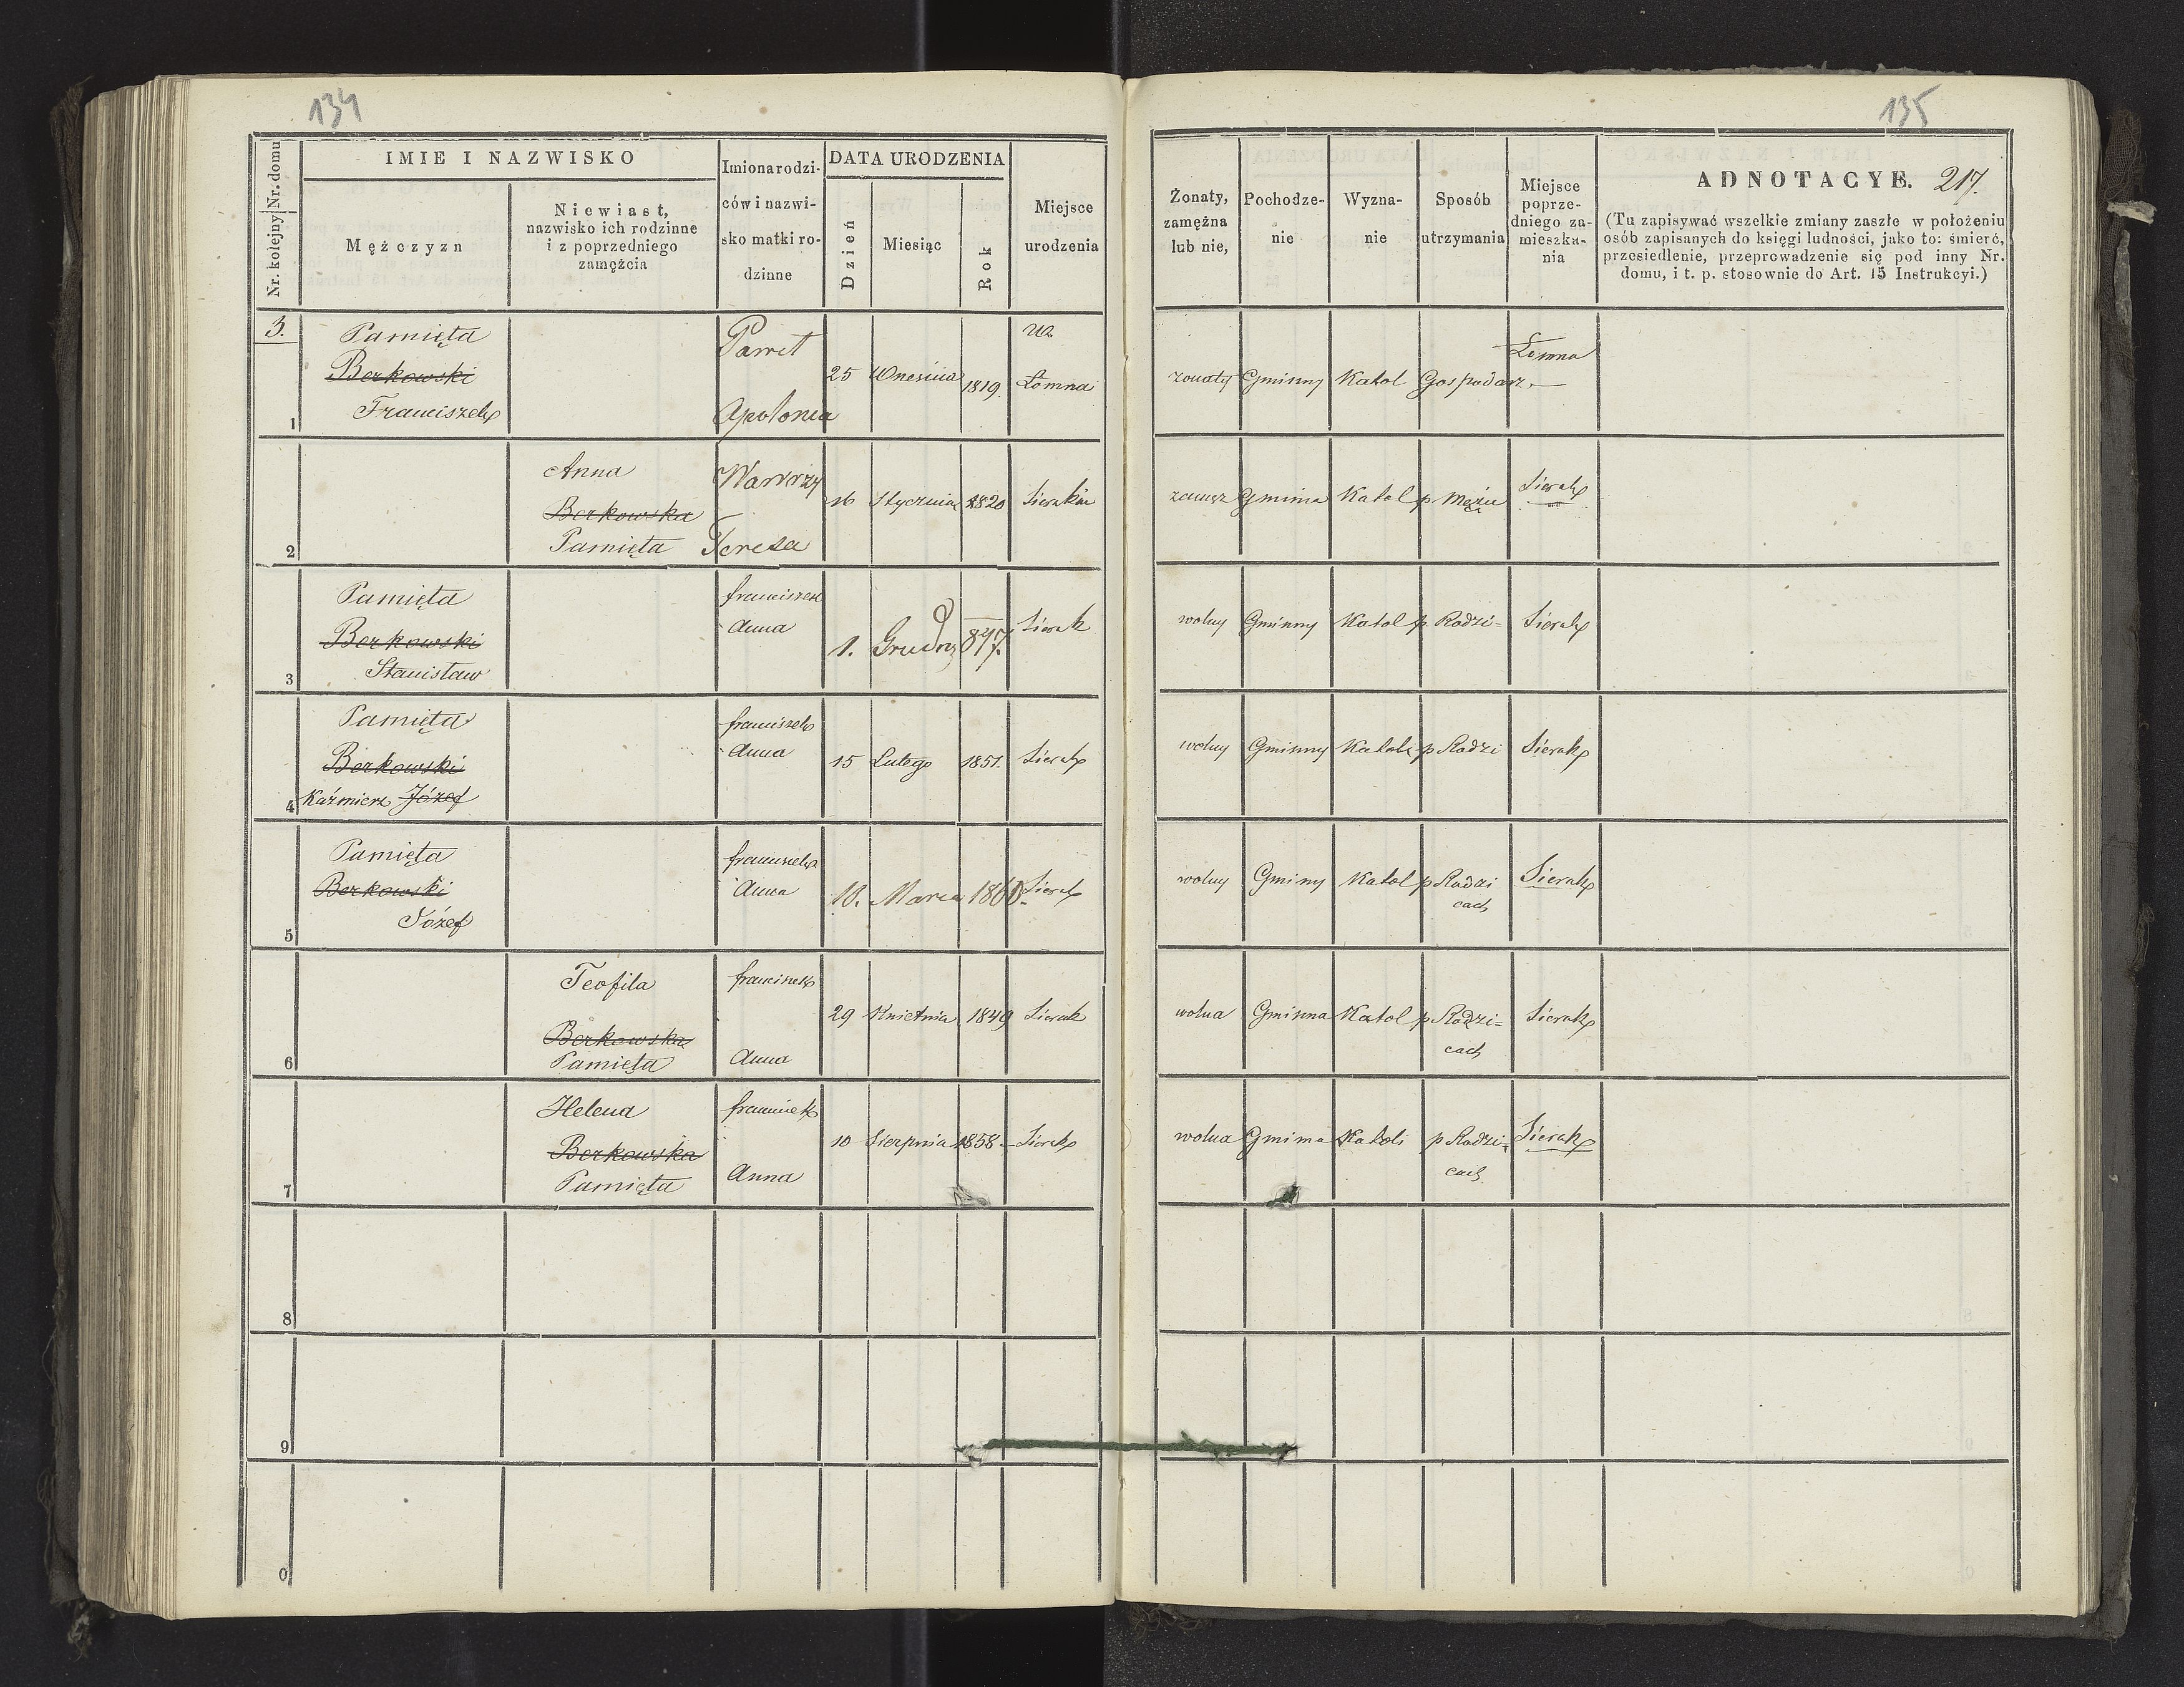 134
135
Nr. kolejny Nr. domu
IMIE I NAZWISKO
Mężczyzn
Niewiast,
nazwisko ich rodzinne
i z poprzedniego
zamężcia
Imiona rodzi-
ców i nazwi-
sko matki ro-
dzinne
DATA URODZENIA
Dzień
Miesiąc
Rok
Miejsce
urodzenia
Żonaty,
zamężna
lub nie,
Pochodze-
nie
Wyzna-
nie
Sposób
utrzymania
Miejsce
poprze-
dniego za-
mieszka-
nia
ADNOTACYE. 217.
(Tu zapisywać wszelkie zmiany zaszłe w położeniu
osób zapisanych do księgi ludności, jako to: śmierć,
przesiedlenie, przeprowadzenie się pod inny Nr.
domu, i t. p. stosownie do Art. 15 Instrukcyi.)
3.
1
Pamięta
Berkowski
Franciszek
Paweł
Apolonia
25 Wresnia 1819.
Łomna
żonaty Gminny Katol Gospodarz
Łomna
2
Anna
Berkowska
Pamięta
Wawrzy
Teresa
16 Stycznia 1820 Sieraków
zamęz Gminna Katol p Mężu
Sierak
3
Pamięta
Berkowski
Stanisław
franciszek
Anna
1. Grudn 847. Sierak
wolny Gminny Katol p. Rodzi= Sierak
4
Pamięta
Berkowski
Kaźmierz Józef
franciszek
Anna
15 Lutego 1851. Sierak
wolny Gminny Katoli p Rodzi Sierak
5
Pamięta
Berkowski
Józef
franciszek
Anna
10. Marca 1860. Sierak
wolny Gminy Katol p Rodzi
cach
Sierak
6
Teofila
Berkowska
Pamięta
franciszek
Anna
29 Kwietnia 1849 Sierak
wolna Gminna Katol p Rodzi=
cach
Sierak
7
Helena
Berkowska
Pamięta
franciszek
Anna
10 Sierpnia 1858 Sierak
wolna Gminna Katoli p Rodzi=
cach
Sierak
8
9
0